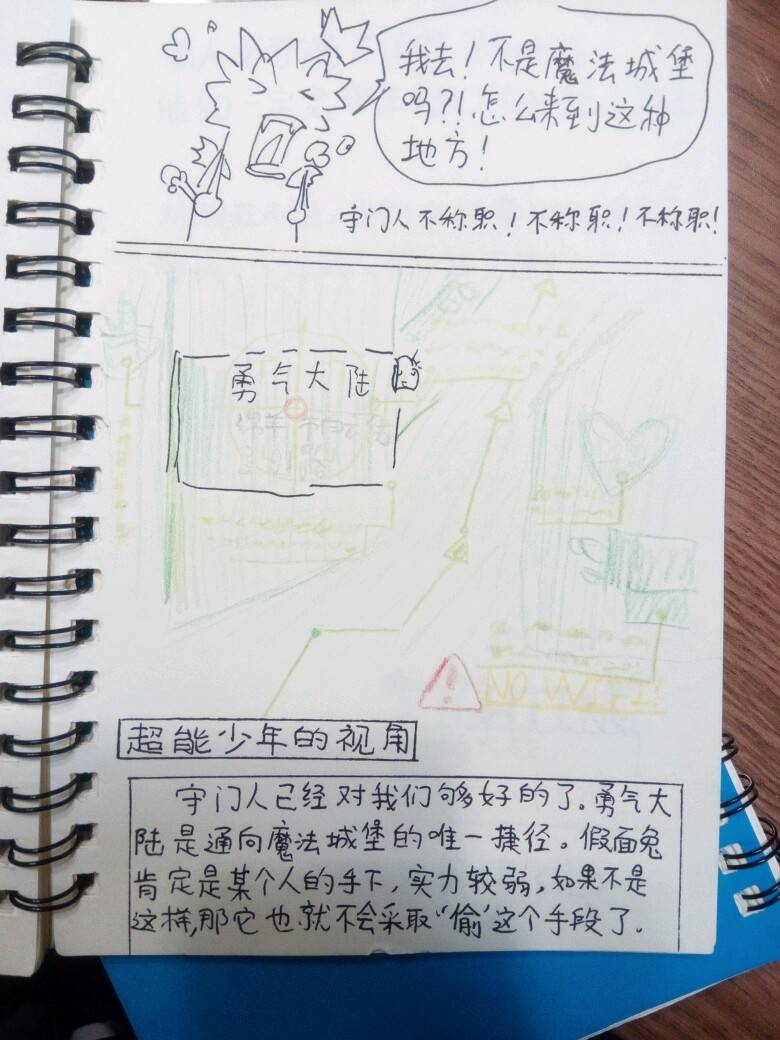 我去！不是魔法城堡
吗?!怎么来到这种
地方！
守门人不称职！不称职！不称职！
勇气大陆
NO WIFI!
超能少年的视角
守门人已经对我们够好的了。勇气大
陆是通向魔法城堡的唯一捷径。假面兔
肯定是某个人的手下，实力较弱，如果不是
这样，那它也就不会采取“偷”这个手段了。